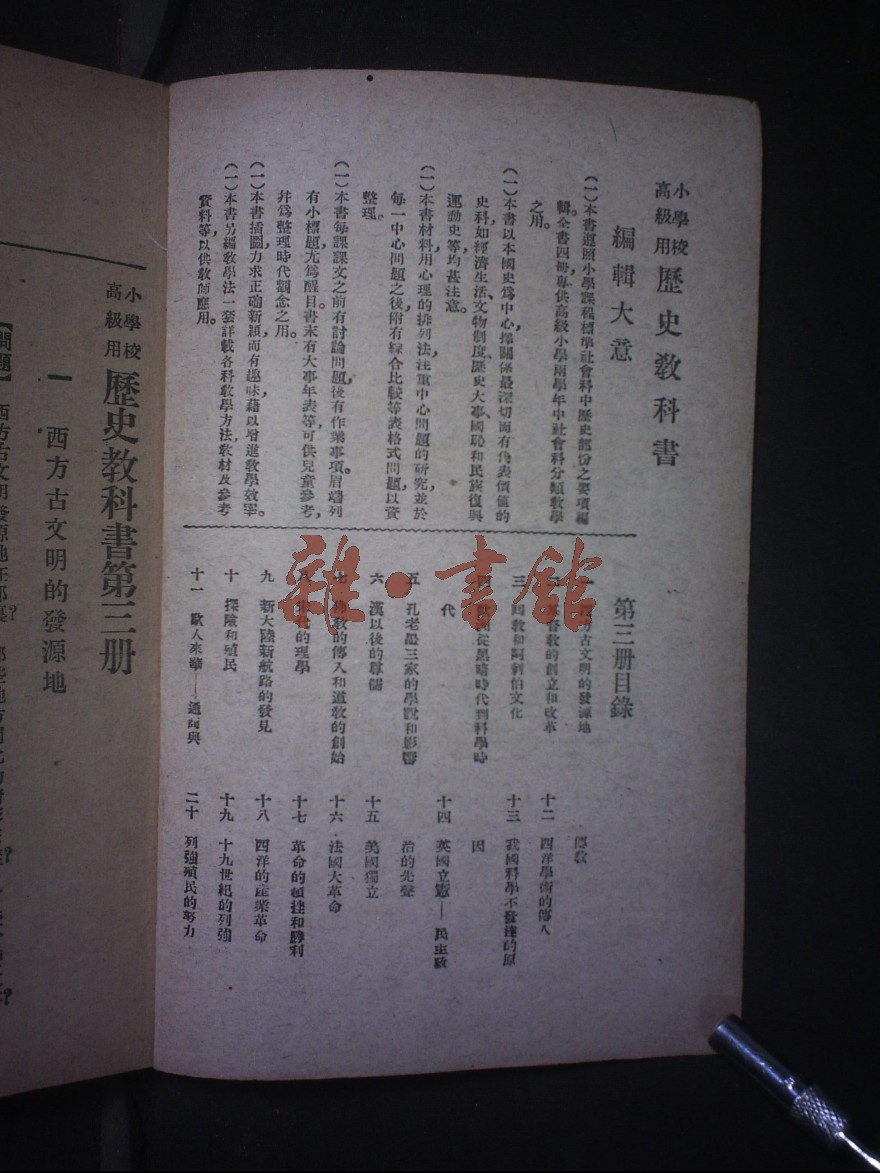 小學校
高級用
歷史教科書
編輯大意
(一)本書遵照小學課程標準社會科中歷史部份之要項編
輯。全書四冊專供高級小學兩學年中社會科分類教學
之用。
(一)本書以本國史爲中心,擇關係最深切而有代表價值的
史科如經濟生活、文物制度、歷史大事、國恥和民族復興
運動史等均甚注意。
(一)本書材料用心理的排列法,注重中心問題的研究,並於
每一中心問題之後附有綜合比較等表格式問題以資
整理。
(一)本書每課課文之前有討論問題,後有作業事項。眉端列
有小標題尤爲醒目。書末有大事年表等,可供兒童參考,
幷爲整理時代觀念之用。
(一)本書插圖力求正確新穎而有趣味,藉以增進教學效率。
(一)本書另編教學法一套,詳載各科教學方法、教材及參考
資料等,以供教師應用。
第三冊目錄
一 西方古文明的發源地
二 基督教的創立和改革
三 回教和阿剌伯文化
四 歐洲從黑暗時代到科學時
代
五 孔老墨三家的學說和影響
六 漢以後的尊儒
七 佛教的傳入和道教的創始
八 宋代的理學
九 新大陸新航路的發見
十 探險和殖民
十一 歐人來華——通商與
傳教
十二 西洋學術的傳入
十三 我國科學不發達的原
因
十四 英國立憲——民主政
治的先聲
十五 美國獨立
十六 法國大革命
十七 革命的頓挫和勝利
十八 西洋的產業革命
十九 十九世紀的列強
二十 列強殖民的努力
雜·書館
小學校
高級用
歷史教科書第三冊
一 西方古文明的發源地
【問題】